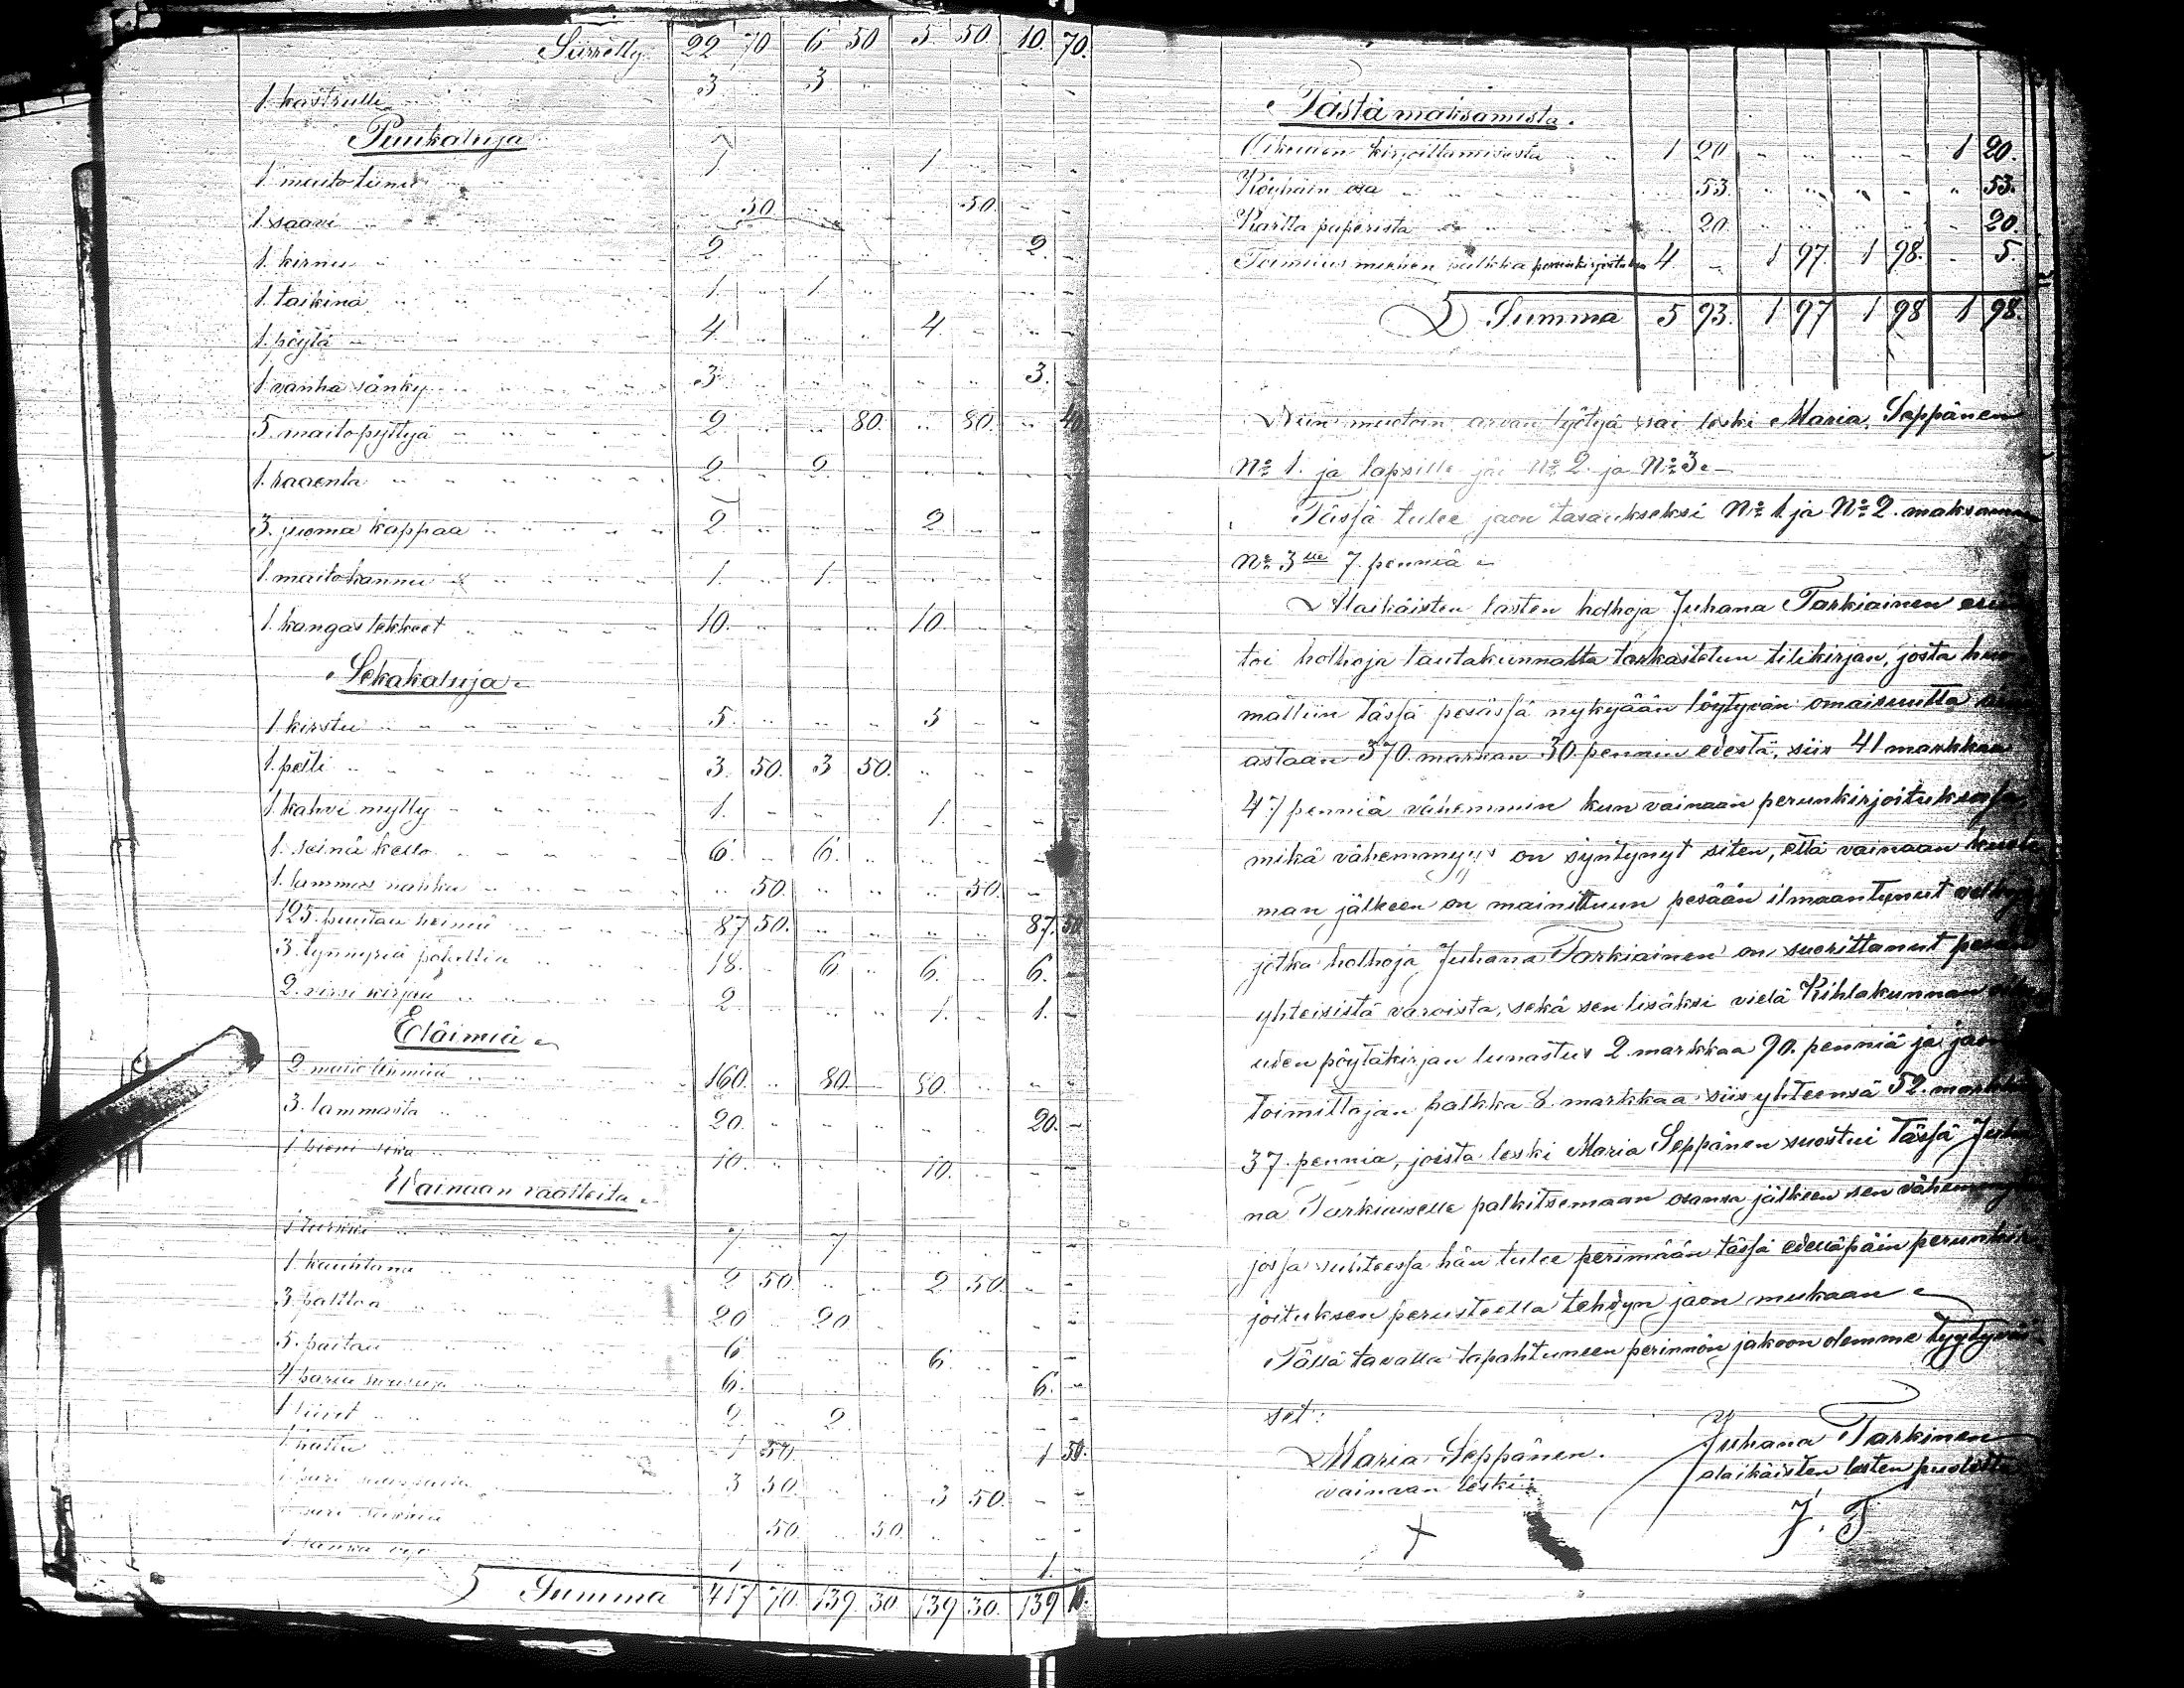 Siirretty 22 70 6 50 5 50 10 70
1. kastrulli 3 3
Puukaluja
1. maito tiinu 1 1
1. saavi 50 50
1. kirnu 2 2
1. taikina 1 1
1. pöytä 4 4
1. vanha sänky 3 3
5. maitopyttyä 2 80 80 40
1. raaenta 2 2
3. juoma kappaa 2 2
1. maitokannu 1 1
1. kangas tekkeet 10 10
Sekakaluja
1. kirstu 5 5
1. pelti 3 50 3 50
1. kahvi mylly 1 1
1. seinä kello 6 6
1. lammas nahka 50 50
125. puutaa heiniä 87 50 87 50
3. tynnyriä 18 6 6 6
2. virsi kirjaa 2 1 1
Eläimiä
2. 160 80 80
3. lammasta 20 20
1 pieni sika 10 10
Wainaan vaatteita
1 turkki 7 7
1. kauhtana 2 50 2 50
3. palttoa 20 20
5. paitaa 6 6
4 paria housuja 6 6
1 liivit 2 2
1 hattu 1 50 1 50
1 pari 3 50 3 50
1 pari 50 50
1. vyö 1 1
Summa 417 70 139 30 139 30 139 10
Tästä maksamista.
kirjoittamisesta 1 20 1 20
Köyhäin osa 53 53
Kartta paperista 20 20
Toimitus miehen palkka perunkirjoituksen 4 1 97 1 98 5
Summa 5 93 1 97 1 98 1 98
Niin muotoin arvan työtyä sai leski Maria Seppänen
No 1. ja lapsille jäi No 2. ja No 3.
Tässä tulee jaon tasaukseksi No 1 ja No 2. maksamaan
No 3 lle 7. penniä
Alaikäisten lasten holhoja Juhana Tarkiainen
toi holhoja lautakunnalta tarkastetun tilikirjan, josta
mattiin tässä pesässä nykyään löytyvän omaisuutta
astaan 370. markan 30. pennin edestä, siis 41 markkaa
47 penniä vähemmin kun vainaan perunkirjoituksessa
mikä vähemmyys on syntynyt siten, että vainaan kuole
man jälkeen on mainittuun pesään ilmaantunut velkoja
jotka holhoja Juhana Tarkiainen on suorittanut pesän
yhteisistä varoista, sekä sen lisäksi vielä Kihlakunnan
uden pöytäkirjan lunastus 2. markkaa 90. penniä ja jaon
toimittajan palkka 8. markkaa siis yhteensä 52. markkaa
37. pennia, joista leski Maria Seppänen suostui tässä Juha
na Tarkiaiselle palkitsemaan osansa jälkeen sen
jossa suhteessa hän tulee perimään tässä edelläpäin perunkir
joituksen perusteella tehdyn jaon mukaan
Tällä tavalla tapahtuneen perinnön jakoon olemme tyytyväi
set:
Maria Seppänen. Juhana Tarkinen
vainaan leski: alaikäisten lasten puolesta
X J. T